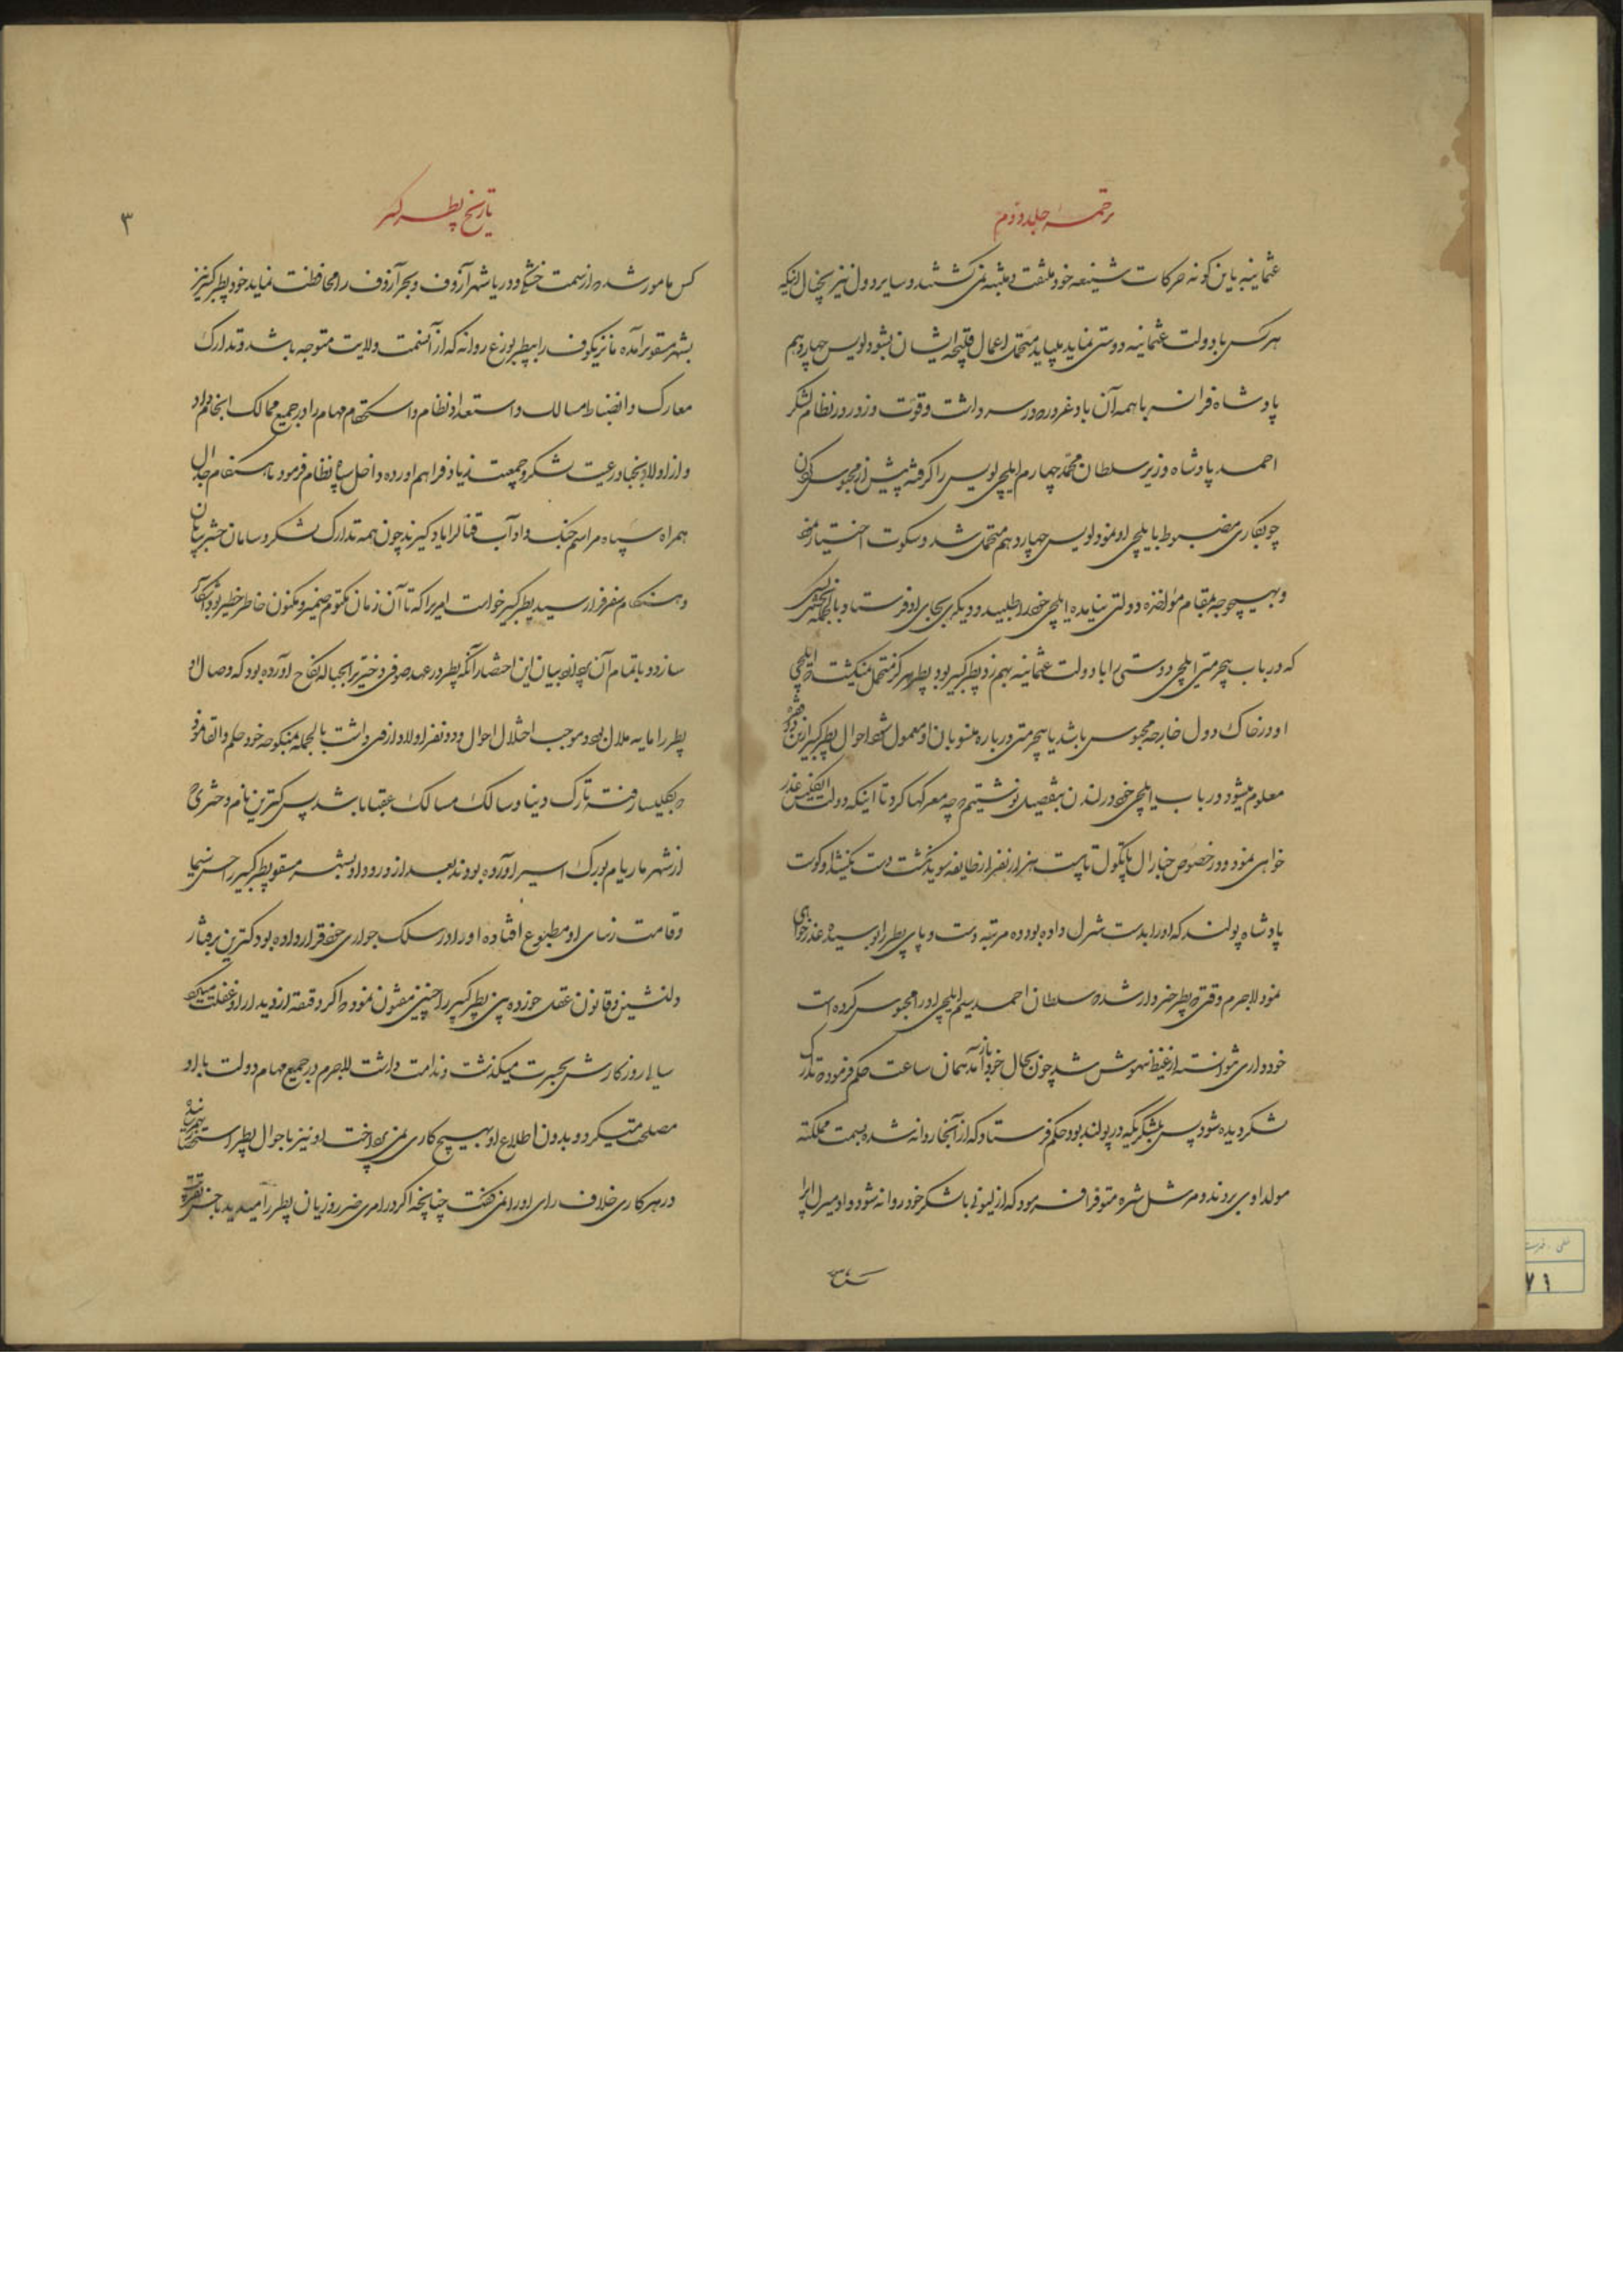 ترجمهٔ جلد دوم
عثمانیه باین گونه حرکات شنیعه خود ملتفت و متنبه نمی گشتند و سایر دول نیز بخیال اینکه
هر کس با دولت عثمانیه دوستی نماید میباید متحمل اعمال قبیحه ایشان بشود لویس چهاردهم
پادشاه فرانسه با همه آن باد غرور که در سر داشت و قوت و زور در نظام لشکر
احمد پادشاه وزیر سلطان محمد چهارم ایلچی لویس را گرفته پیش از محبوس کردن
چوبکاری مضبوط بایلچی او نمود لویس چهاردهم متحمل شد و سکوت اختیار نمود
و بهیچوجه بمقام مؤاخذه دولتی نیامده ایلچی خود را طلبید و دیگری بجای او فرستاد بالجمله
که در باب بیحرمتی ایلچی دوستی را با دولت عثمانیه بهم زد پطر کبیر بود پطر هرگز متحمل نمیگشت که ایلچی
او در خاک دول خارجه محبوس باشد یا بیحرمتی درباره منسوبان او معمول شود احوال پطر کبیر ازین فقره
معلوم میشود در باب ایلچی خود در لندن بتفصیل نوشتیم که چه معرکها کرد تا اینکه دولت انگلیس عذر
خواهی نمود و در خصوص جنارال پاتکول تا بیست هزار نفر از طایفه سوید نگشت دست نکشید اوکوست
پادشاه پولند که او را بدست شرل داده بود ده مرتبه دست و پای پطر را بوسید و عذر خواهی
نمود لاجرم وقتی که پطر خبردار شد که سلطان احمد سیم ایلچی او را محبوس کرده است
خودداری نتوانست از غیظ بیهوش شد چون بحال خود باز آمد همان ساعت حکم فرمود که تدارک
لشکر دیده شود پس بلشکریکه در پولند بود حکم فرستاد که از آنجا روانه شده بسمت مملکت
مولداوی بروند و مرشل شره متوف را فرمود که از لیونی با لشکر خود روانه شود و ادمیرل اپرا
تاریخ پطر کبیر
۳
کس مامور شد که از سمت خشکی و دریا شهر آزوف و بحر آزوف را محافظت نماید خود پطر کبیر نیز
بشهر مسقو برآمده مانزیکوف را بپطربورغ روانه که از آنسمت ولایت متوجه باشد و تدارک
معارک و انضباط مسالک و استعداد نظام و استحکام مهام را در جمیع ممالک انجام داد
و از اولاد نجبا و رعیت لشکر و جمعیت زیاد فراهم آورده و داخل سپاه نظام فرمود تا هنگام جدال
همراه سپاه مراسم جنک و آداب قتال را یاد گیرند چون همه تدارک لشکر و سامان حشر بپایان
و هنگام سفر فرا رسید پطر کبیر خواست امریرا که تا آن زمان مکتوم ضمیر و مکنون خاطر خطیر بود آشکار
سازد و باتمام آن پردازد بیان این احضار آنکه پطر در عهد صوفی دختریرا بحباله نکاح آورده بود که وصال او
پطر را مایه ملال بود و موجب اختلال احوال و دو نفر اولاد از وی داشت بالجمله منکوحه خود حکم و القا فرمود
که بکلیسا رفته تارک دنیا و سالک مسالک عقبا باشد پس کترین نام دختری که
از شهر ماریام بورک اسیر آورده بودند بعد از ورود او بشهر مسقو پطر کبیر را حسن سیما
و قامت رسای او مطبوع افتاده او را در سلک جواری خود قرار داده بود کترین برفتار
دلنشین و قانون عقل خورده بین پطر کبیر را چنین مفتون نمود که اگر دقیقه از دیدار او غفلت میکرد
سالها روزگارش بحیرت میگذشت و ندامت داشت لاجرم در جمیع مهام دولت با او
مصلحت میکرد و بدون اطلاع او بهیچ کاری نمی پرداخت او نیز باحوال پطر استحضار
در هر کاری خلاف رای او را نمی گفت چنانچه اگر در امری ضرر و زیان پطر را میدید با